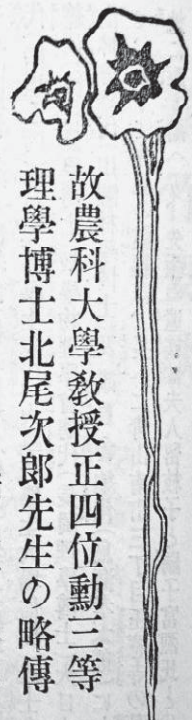 故農科大學敎授正四位勳三等
理學博士北尾次郎先生の略傳